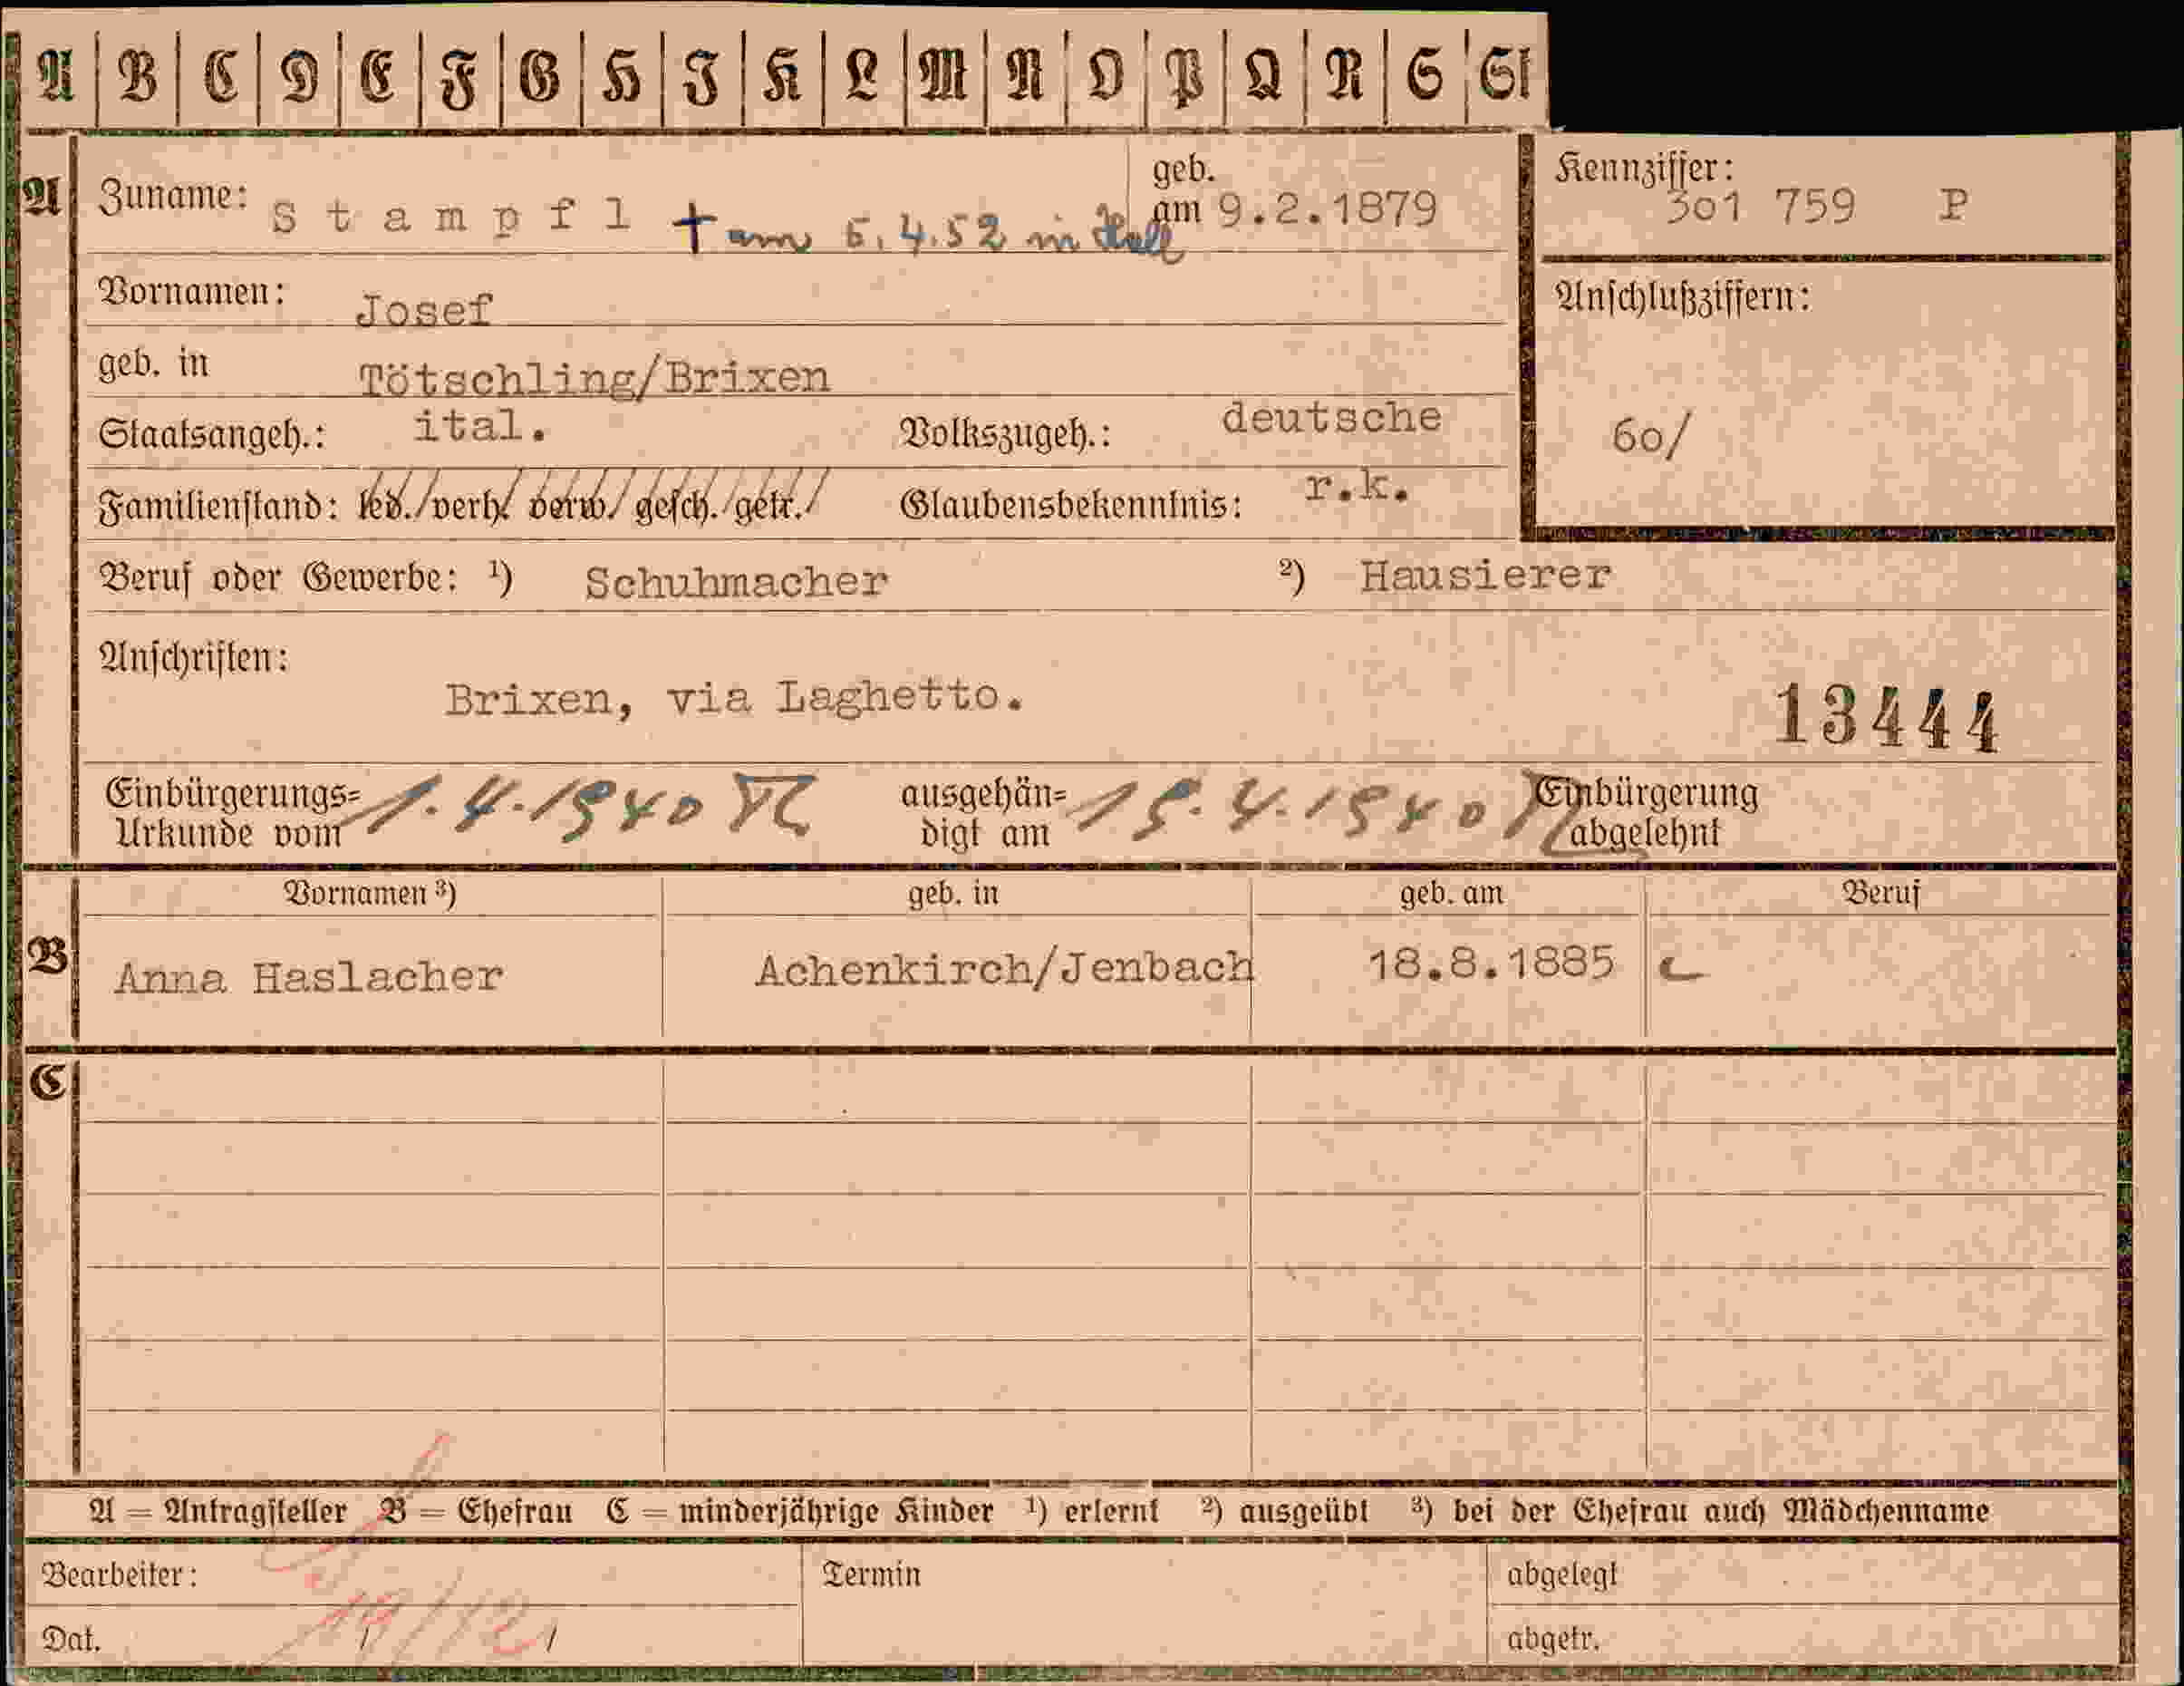 A B C D E F G H I K L M N O P Q R S St
A Zuname: Stampfl + am 5.4.52 in Hall geb. am 9.2.1879
Kennziffer: 301 759 P
Vornamen: Josef
Anschlußziffern:
geb. in Tötschling/Brixen
Staatsangeh.: ital. Volkszugeh.: deutsche
60/
Familienstand: led./verh./verw./gesch./getr./ Glaubensbekenntnis: r.k.
Beruf oder Gewerbe: ¹) Schuhmacher ²) Hausierer
Anschriften:
Brixen, via Laghetto.
13444
Einbürgerungs=
Urkunde vom 1.4.1940
ausgehän=
digt am 19.4.1940
Einbürgerung
abgelehnt
Vornamen ³) geb. in geb. am Beruf
B Anna Haslacher Achenkirch/Jenbach 18.8.1885
C
A = Antragsteller B = Ehefrau C = minderjährige Kinder ¹) erlernt ²) ausgeübt ³) bei der Ehefrau auch Mädchenname
Bearbeiter: Termin abgelegt
Dat. 19/12 abgetr.